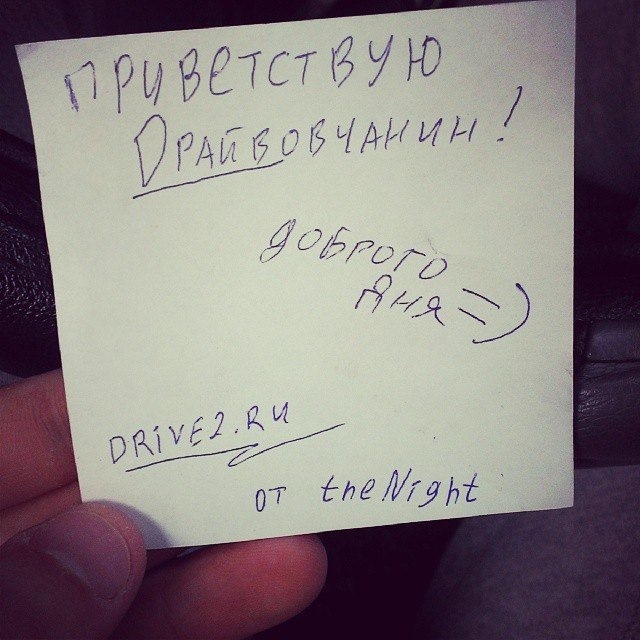 ПРИВЕТСТВУЮ
ДРАЙВОВЧАНИН!
ДОБРОГО
ДНЯ =)
DRIVE2.RU
от theNight